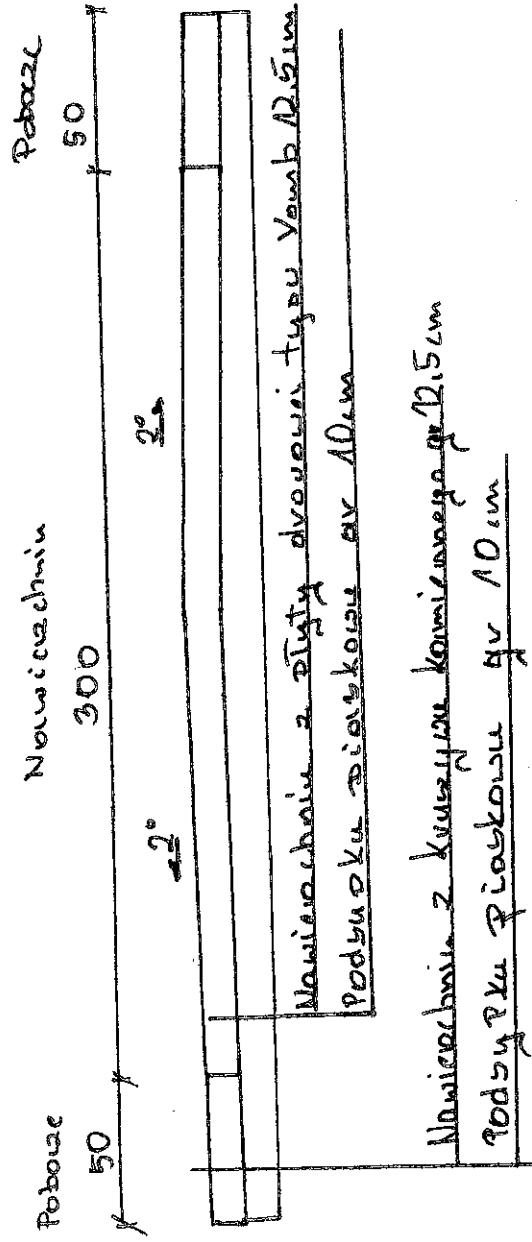 Pobocze Nawierzchnia Pobocze
50 300 50
2° 2°
Nawierzchnia z płyty drogowei typu Yomb 12.5cm
Podsypka piaskowa gr 10cm
Nawierzchnia z kruszywa kamiennego gr 12.5cm
Podsypka piaskowa gr 10cm